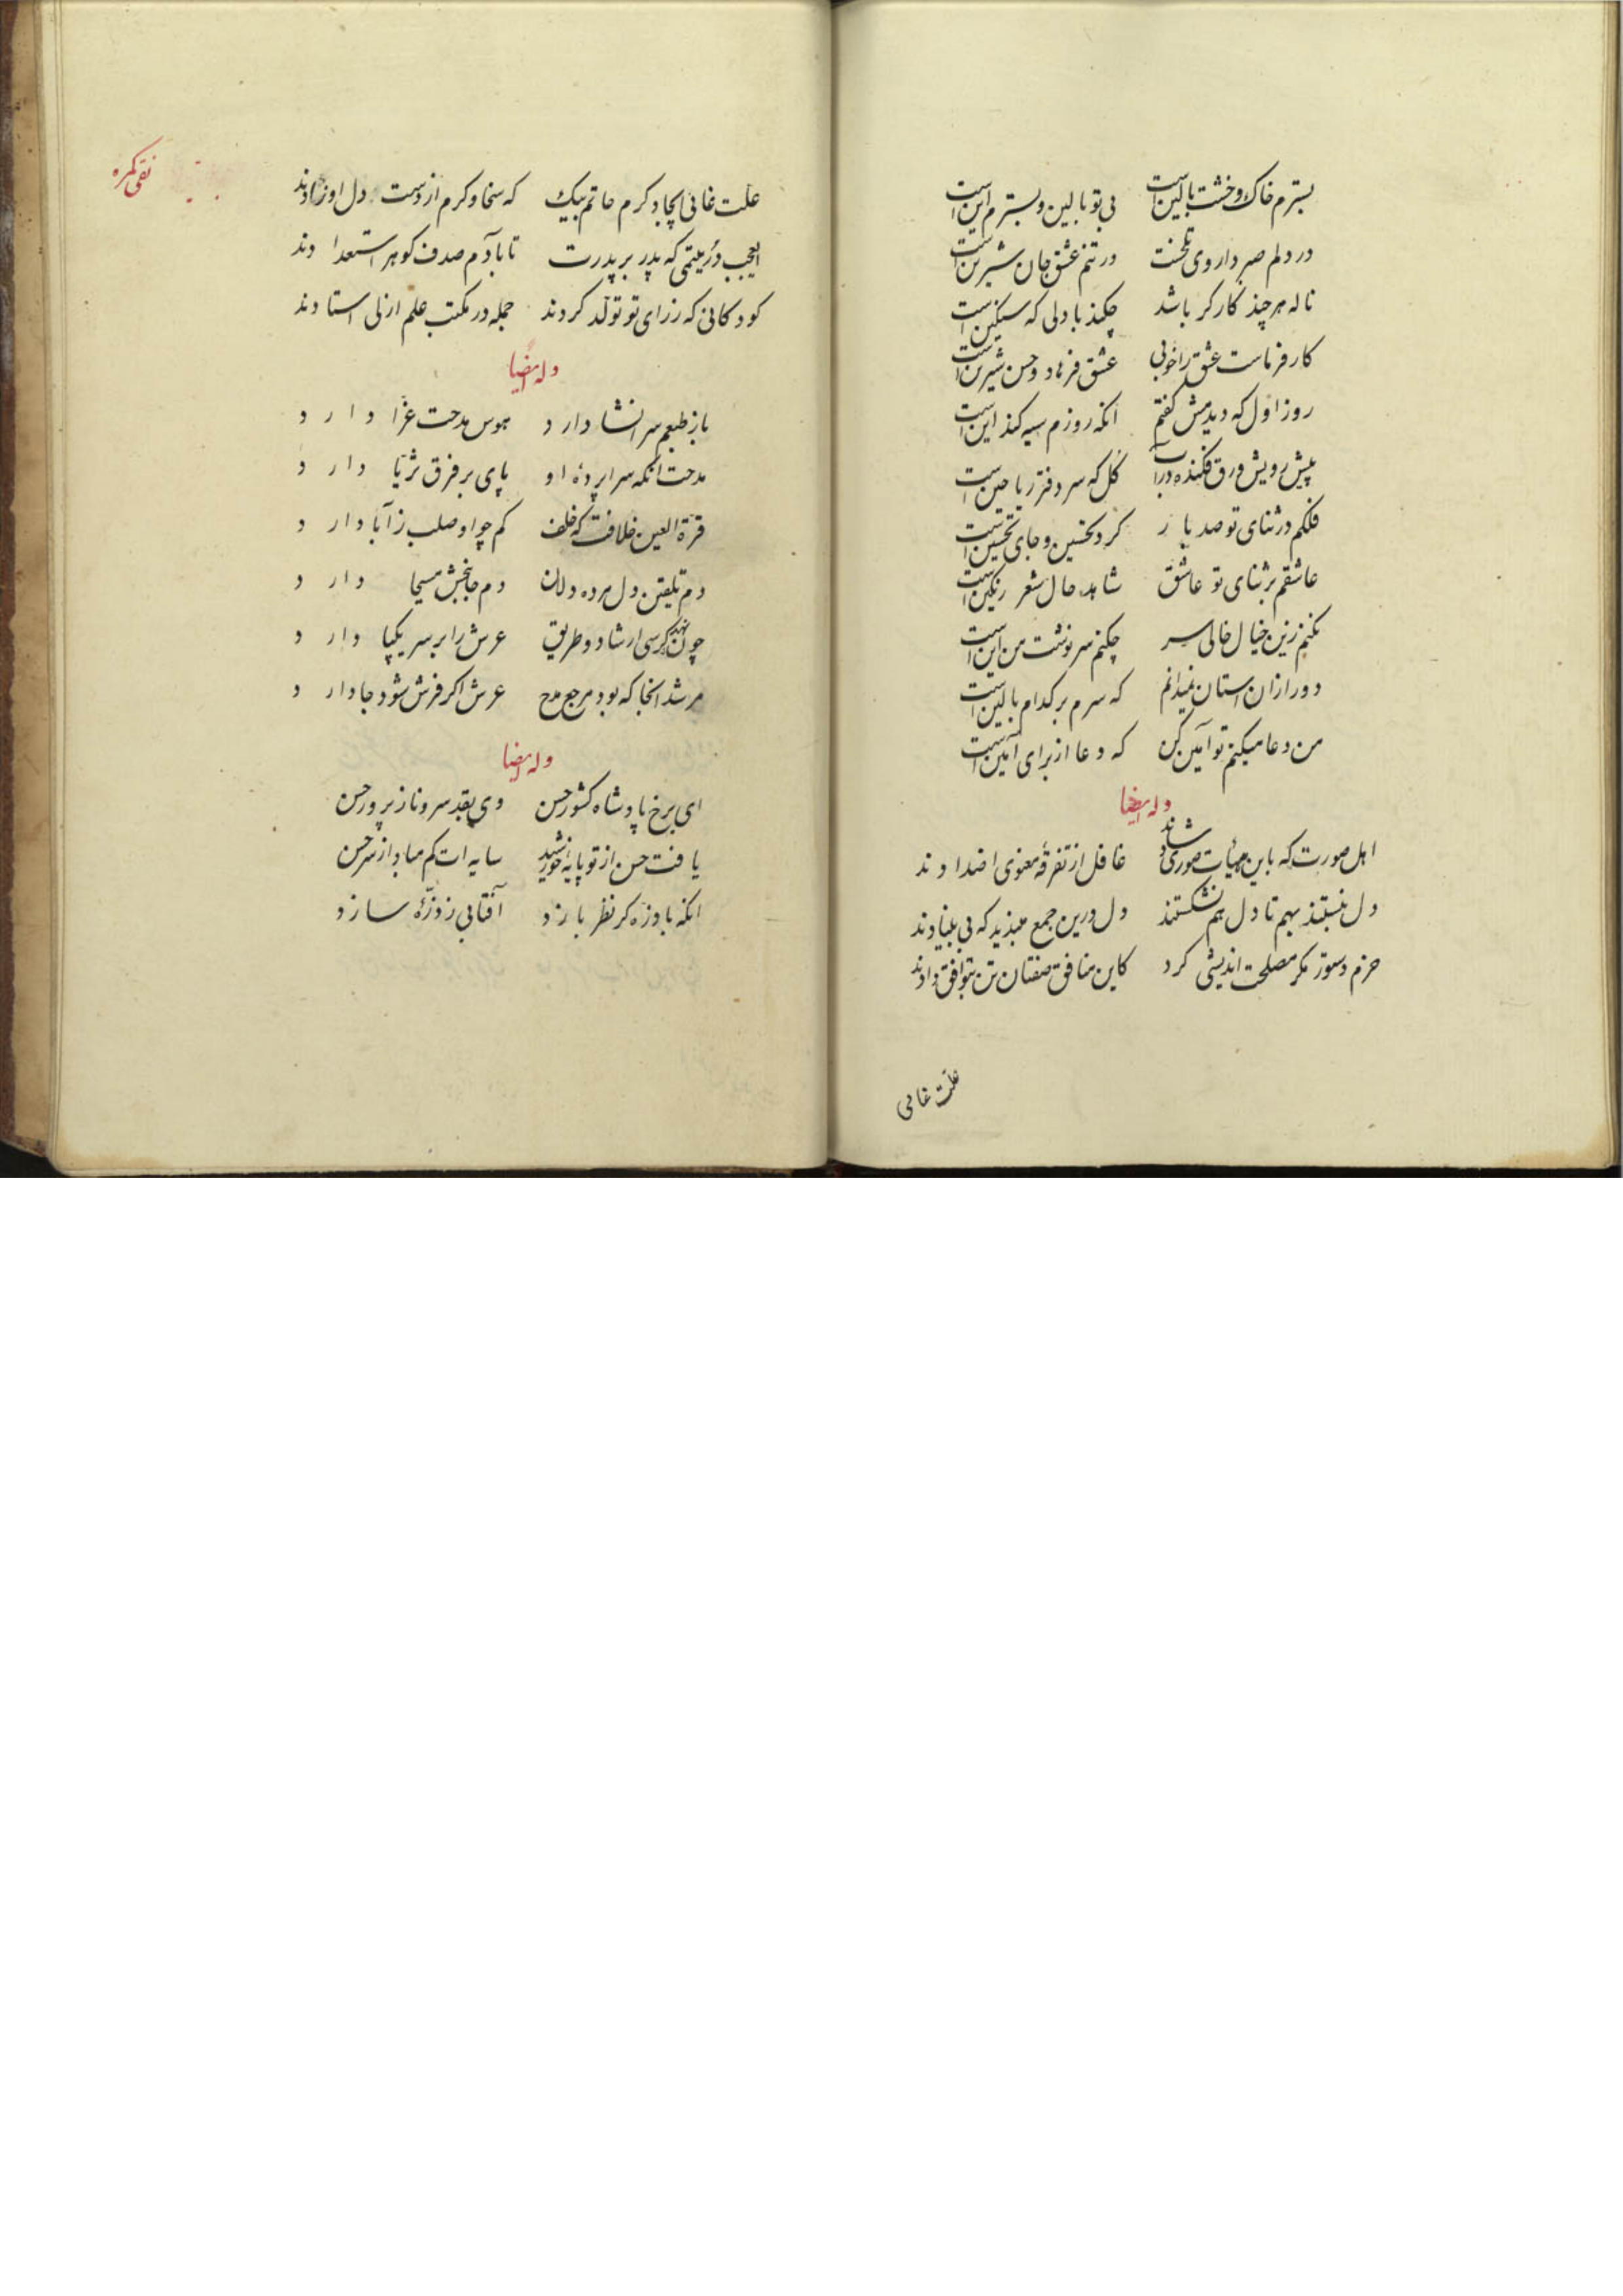 بسترم خاک و خشت بالین است بی تو بالین و بسترم این است
در دلم صبر داروی تلخست در تنم عشق جان شیرین است
ناله هر چند کارکر باشد چکند با دلی که سنکین است
کارفرماست عشق را خوبی عشق فرهاد و حسن شیرین است
روز اول که دیدمش کفتم انکه روزم سیه کند این است
پیش رویش ورق فکنده در آب کل که سر دفتر ریاحین است
فلکم در ثنای تو صد بار کرد تحسین و جای تحسین است
عاشقم بر ثنای تو عاشق شاهد حال شعر رنکین است
نکنم زین خیال خالی سر چکنم سرنوشت من این است
دور ازان استان نمیدانم که سرم بر کدام بالین است
من دعا میکنم تو آمین کن که دعا از برای آمین است
وله ایضا
اهل صورت که باین هیأت صوری شادند غافل از تفرقهٔ معنوی اضدادند
دل نبستند بهم تا دل هم نشکستند دل درین جمع مبندید که بی بنیادند
حزم دستور مکر مصلحت اندیشی کرد کاین منافق صفتان تن بتوافق دادند
علت غائی
نقی کمره
علت غائی ایجاد کرم حاتم بیک که سخا و کرم از دست دل او زادند
ایعجب در یتیمی که پدر بر پدرت تا بآدم صدف کوهر استعدادند
کودکانی که ز رای تو تولد کردند جمله در مکتب علم ازلی استادند
وله ایضا
باز طبعم سر انشا دارد هوس مدحت غرّا دارد
مدحت انکه سراپردهٔ او پای بر فرق ثریا دارد
قرة العین خلافت که خلف کم چو او صلب ز آبا دارد
دم تلقین دل مرده دلان دم جانبخش مسیحا دارد
چون نهد کرسی ارشاد و طریق عرش را بر سر یکپا دارد
مرشد انجا که بود مرجع مدح عرش اکر فرش شود جا دارد
وله ایضا
ای برخ پادشاه کشور حسن وی بقد سرو ناز پرور حسن
یافت حسن از تو پایهٔ خورشید سایه ات کم مباد از سر حسن
انکه با ذره کر نظر بازد آفتابی ز ذرّهٔ سازد